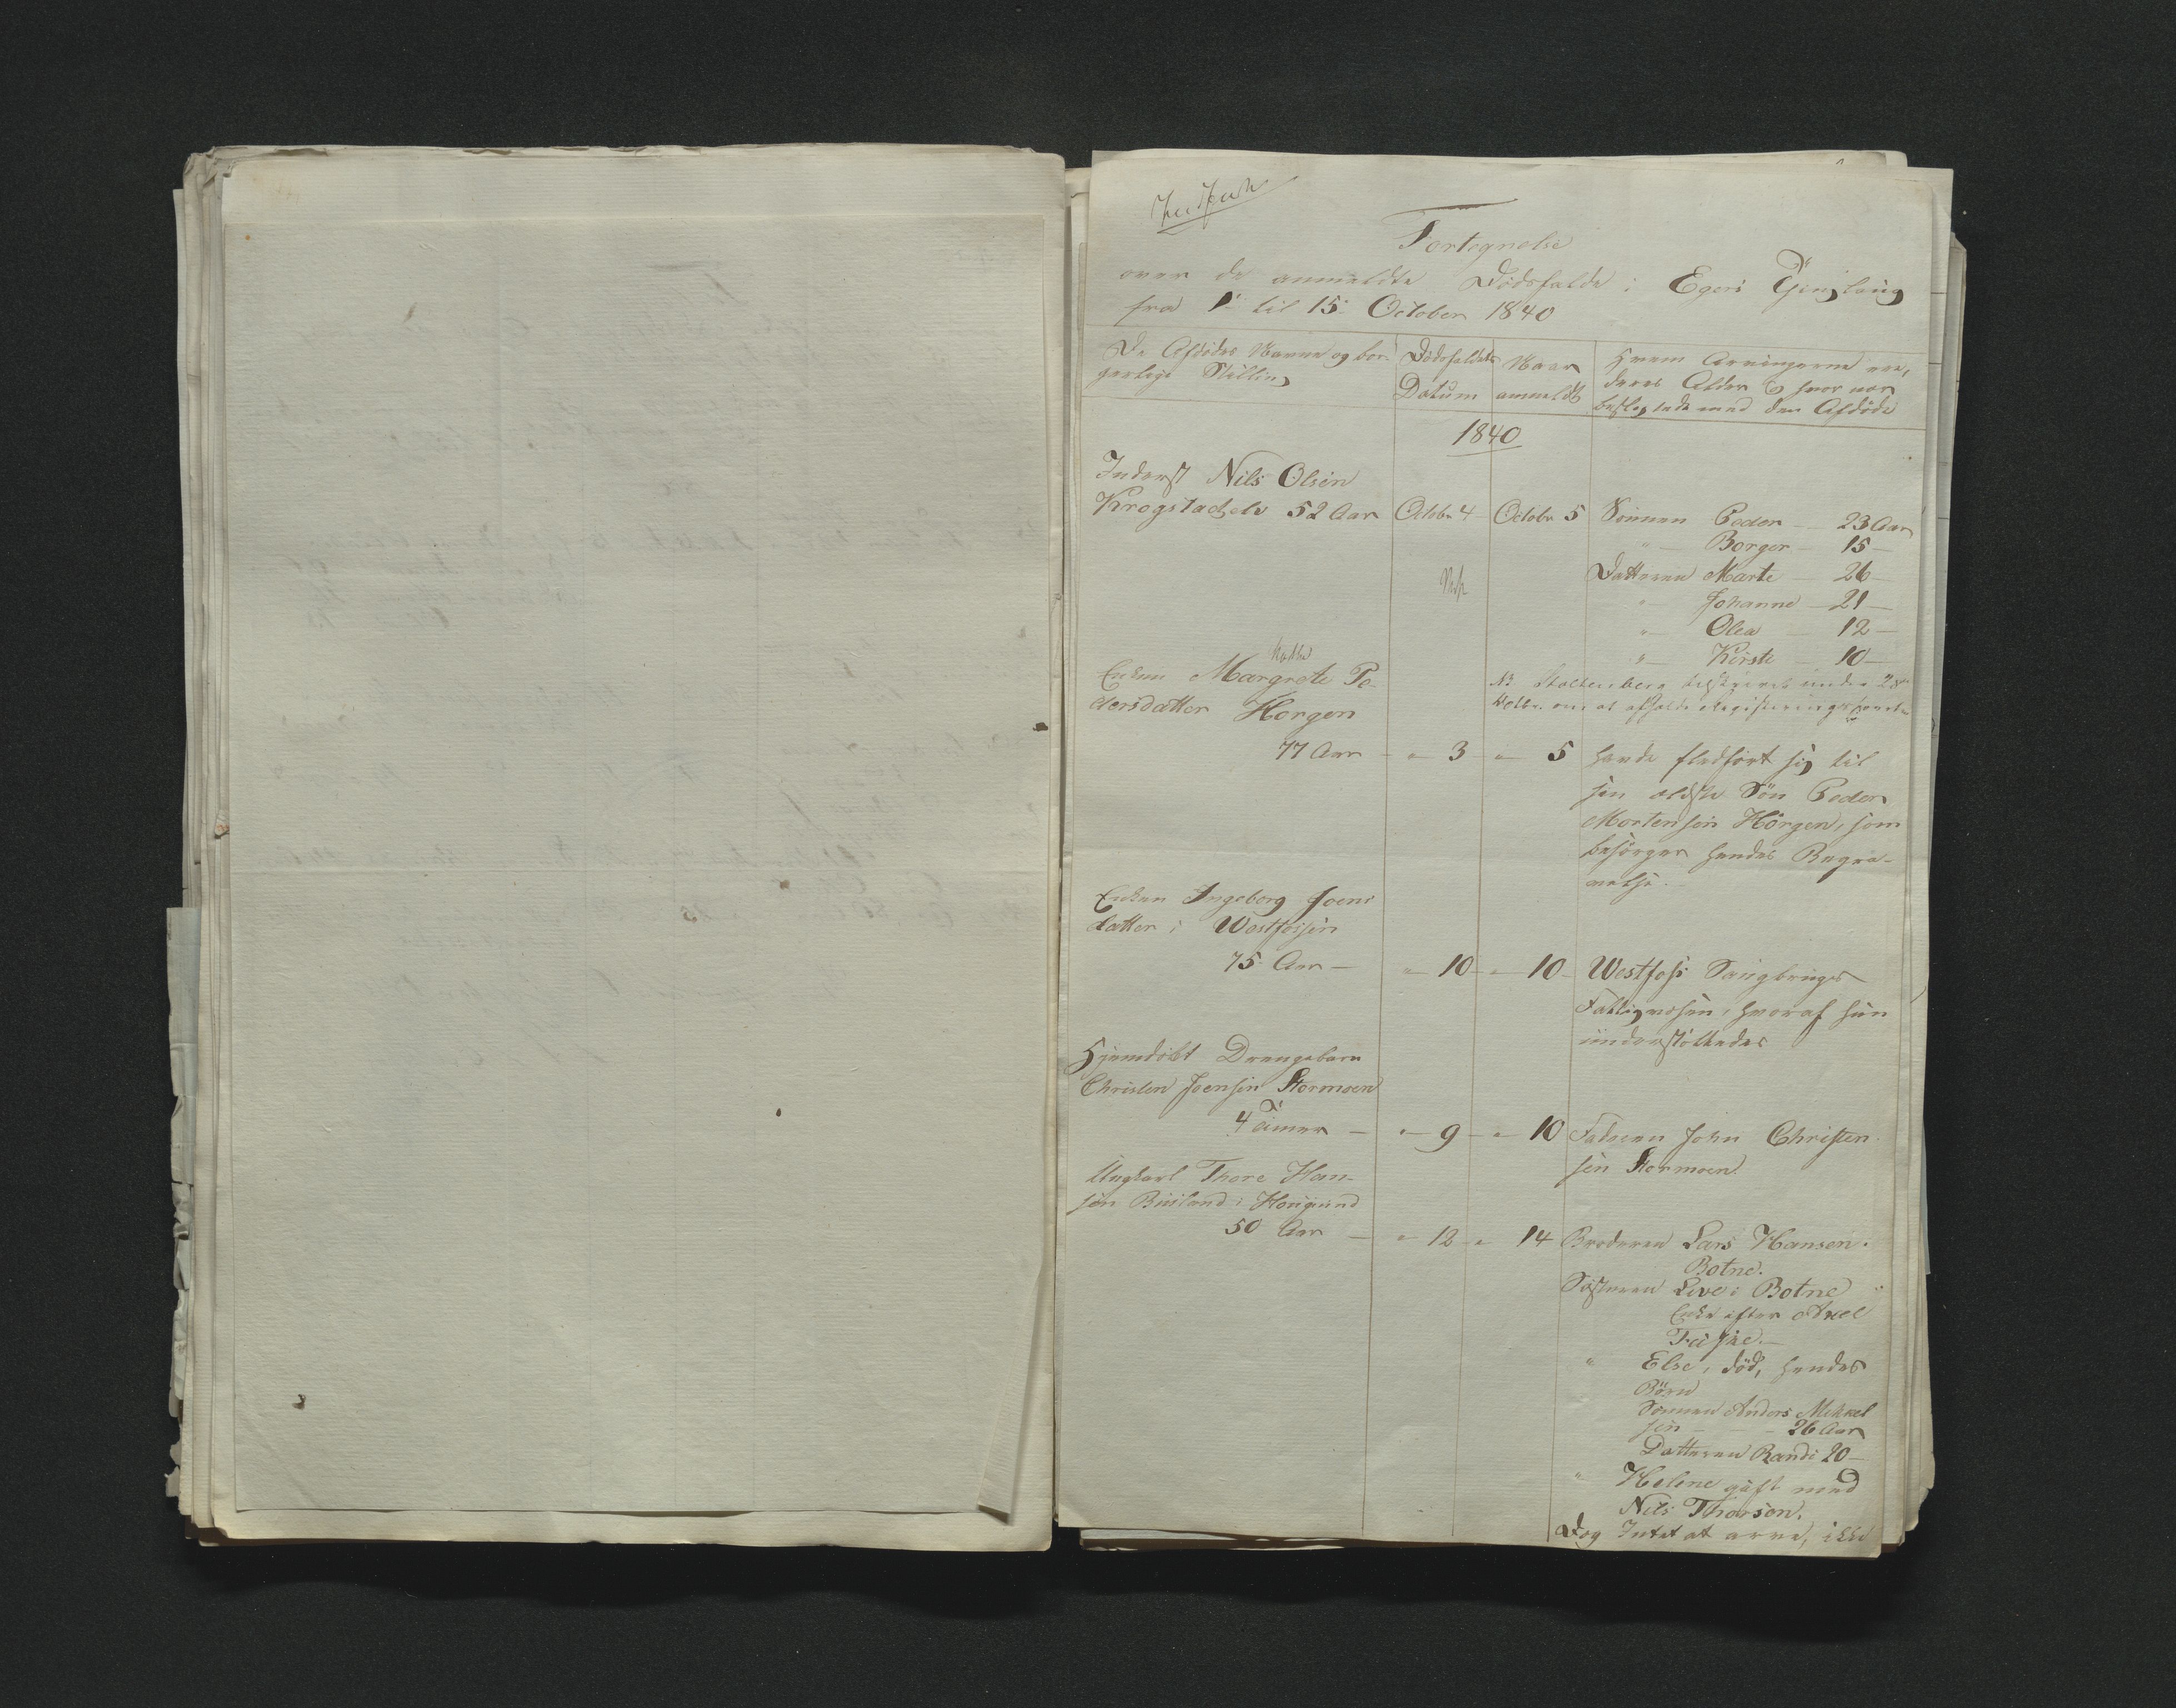 Indført
Fortegnelse
over de anmeldte Dødsfalde i Egers Thinglaug
fra 1. til 15. October 1840
De Afdødes Navne og bor-
gerlige Stilling
Dødsfaldets
Datum
Naar
anmeldt
Hvem Arvingerne ere,
deres Alder og hvor nær
beslegtede med den Afdøde
1840
Inderst Nils Olsen
Krogstadeie 52 Aar Octobr 4 Octobr 5 Sønnen Peder 23 Aar
"— Borger — 15 —
Datteren Marte — 26 —
"— Johanne — 21 —
"— Olea — 12 —
"— Kirste — 10 —
Stoltenberg tilskrevet under 28
om at afholde Registreringsforretn
Enken Margrete Pe-
dersdatter Horgen
77 Aar — "— 3 "— 5 havde fledført sig til
sin ældste Søn Peder
Mortensen Horgen, som
besørger hendes Begra-
velse.
Enken Ingeborg Joens
datter i Westfossen
75 Aar — "— 10 — "— 10 — Westfoss Saugbruges
Fattigvæsen, hvoraf hun
understøttedes
Hjemdøbt Drengebarn
Christen Joensen Stormoen
4 Timer — "— 9 — "— 10 Faderen John Christen
sen Stormoen
Ungkarl Thore Han-
sen Ruiland i Hougsund
50 Aar — "— 12 — "— 14 Broderen Lars Hansen
Botne.
Søsteren Live i Botne
Enke efter Axel
"— Else, død, hendes
Børn
Sønnen Anders Mikkel
sen — 26 Aar
Datteren Randi 20 —
"— Helene gift med
Nils Thorsen.
Dog Intet at arve, ikke